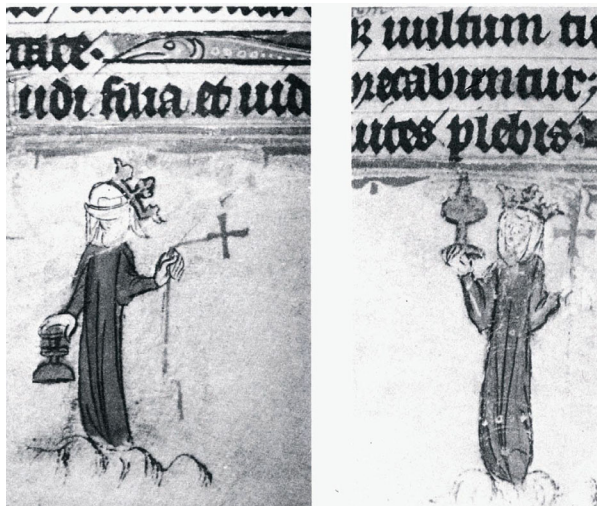 udi filia et uid
uultum tu
recabuntur
utes plebis